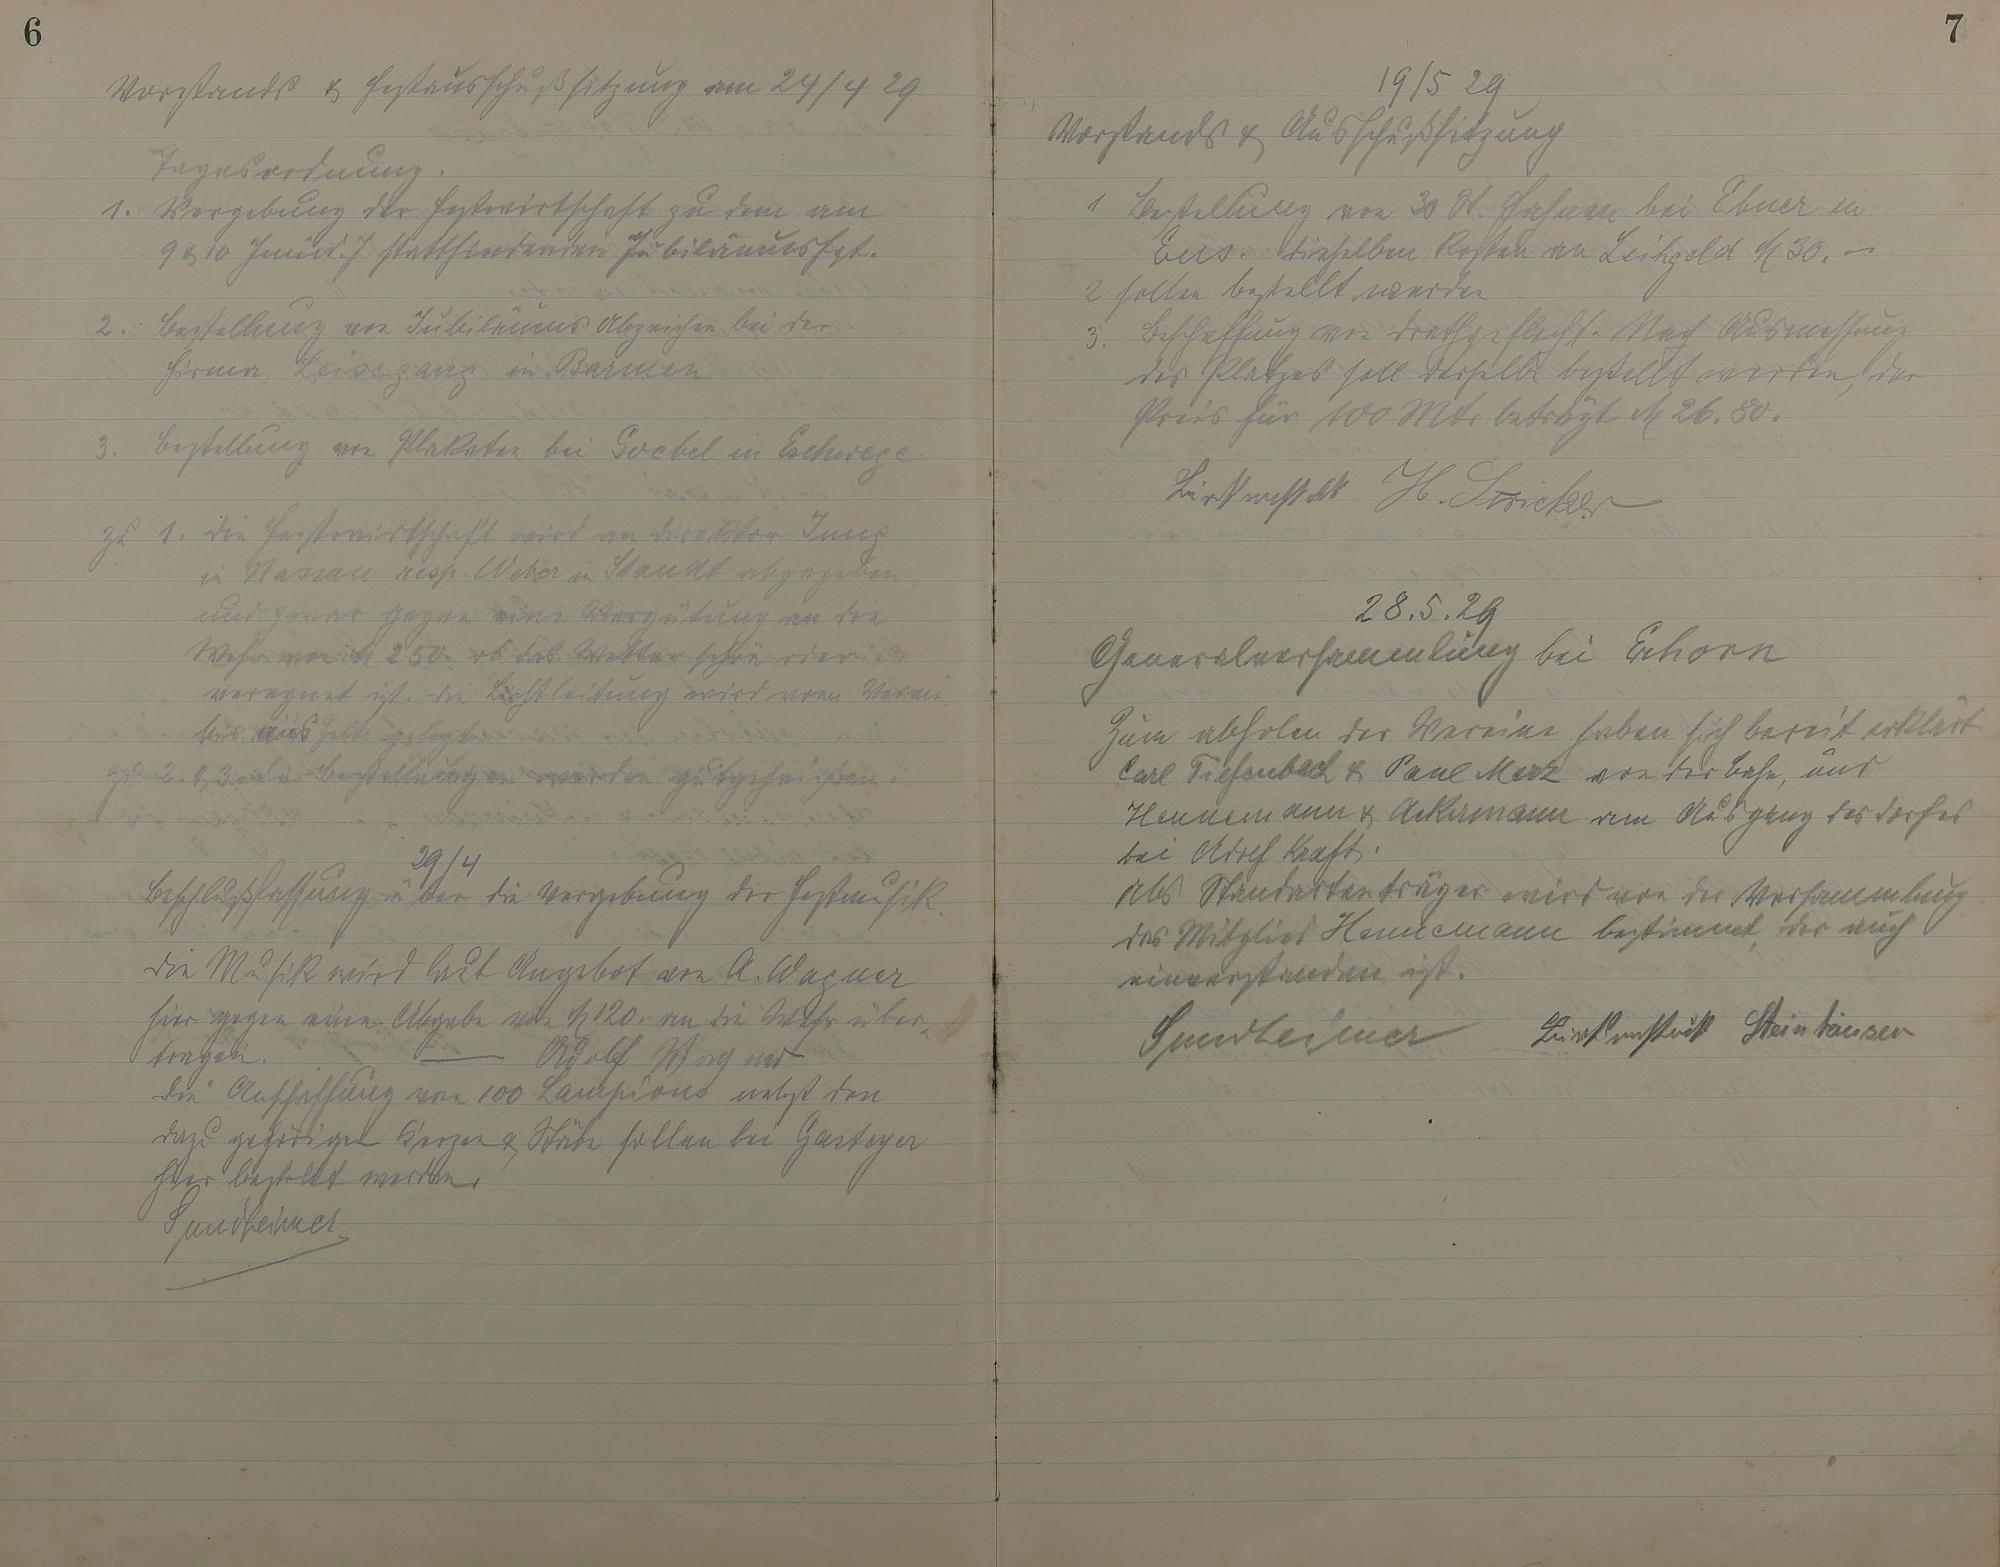 6
Vorstands & Festausschußsitzung am 24/4 29
Tagesordnung.
1. Vergebung der Festwirtschaft zu dem am
9 & 10 Juni d. J. stattfindenden Jubiläumsfest.
2. Bestellung von Jubiläums Abzeichen bei der
Firma Leisegang in Barmen
3. Bestellung von Plakaten bei Goebel in Eschwege.
zu 1. die Festwirtschaft wird an Direktor Jung
in Nassau resp. Weber in Staudt abgegeben,
und zwar gegen eine Vergütung an die
Wehr von M 250. ob das Wetter schön oder
verregnet ist. die Lichtleitung wird vom Verein
bis aufs Zelt gelegt
zu 2. & 3. die Bestellungen werden gutgeheißen.
29/4
Beschlußfassung über die Vergebung der Festmusik.
die Musik wird laut Angebot von A. Wagner
hier gegen eine Abgabe von M 120. an die Wehr über-
tragen. — Adolf Wagner
die Anschaffung von 100 Lampions nebst den
dazu gehörigen Kerzen & Stäbe sollen bei Gasteyer
hier bestellt werden.
Sundheimer
7
19/5 29
Vorstands & Ausschußsitzung
1 Bestellung von 30 St. Fahnen bei Ebner in
Ems. dieselben kosten an Leihgeld M 30. –
2 sollen bestellt werden
3. Beschaffung von Drathgeflecht. Nach Ausmessung
des Platzes soll derselbe bestellt werden, der
Preis für 100 Mtr beträgt M 26.80.
H. Stricker
28.5.29
Generalversammlung bei Echorn
Zum abholen der Vereine haben sich bereit erklärt
Carl Tiefenbach & Paul Merz von der Bahn, und
Hennemann & Ackermann am Ausgang des Dorfes
bei Adolf Kraft.
Als Standartenträger wird von der Versammlung
das Mitglied Hennemann bestimmt, der auch
einverstanden ist.
Sundheimer Steinhäuser